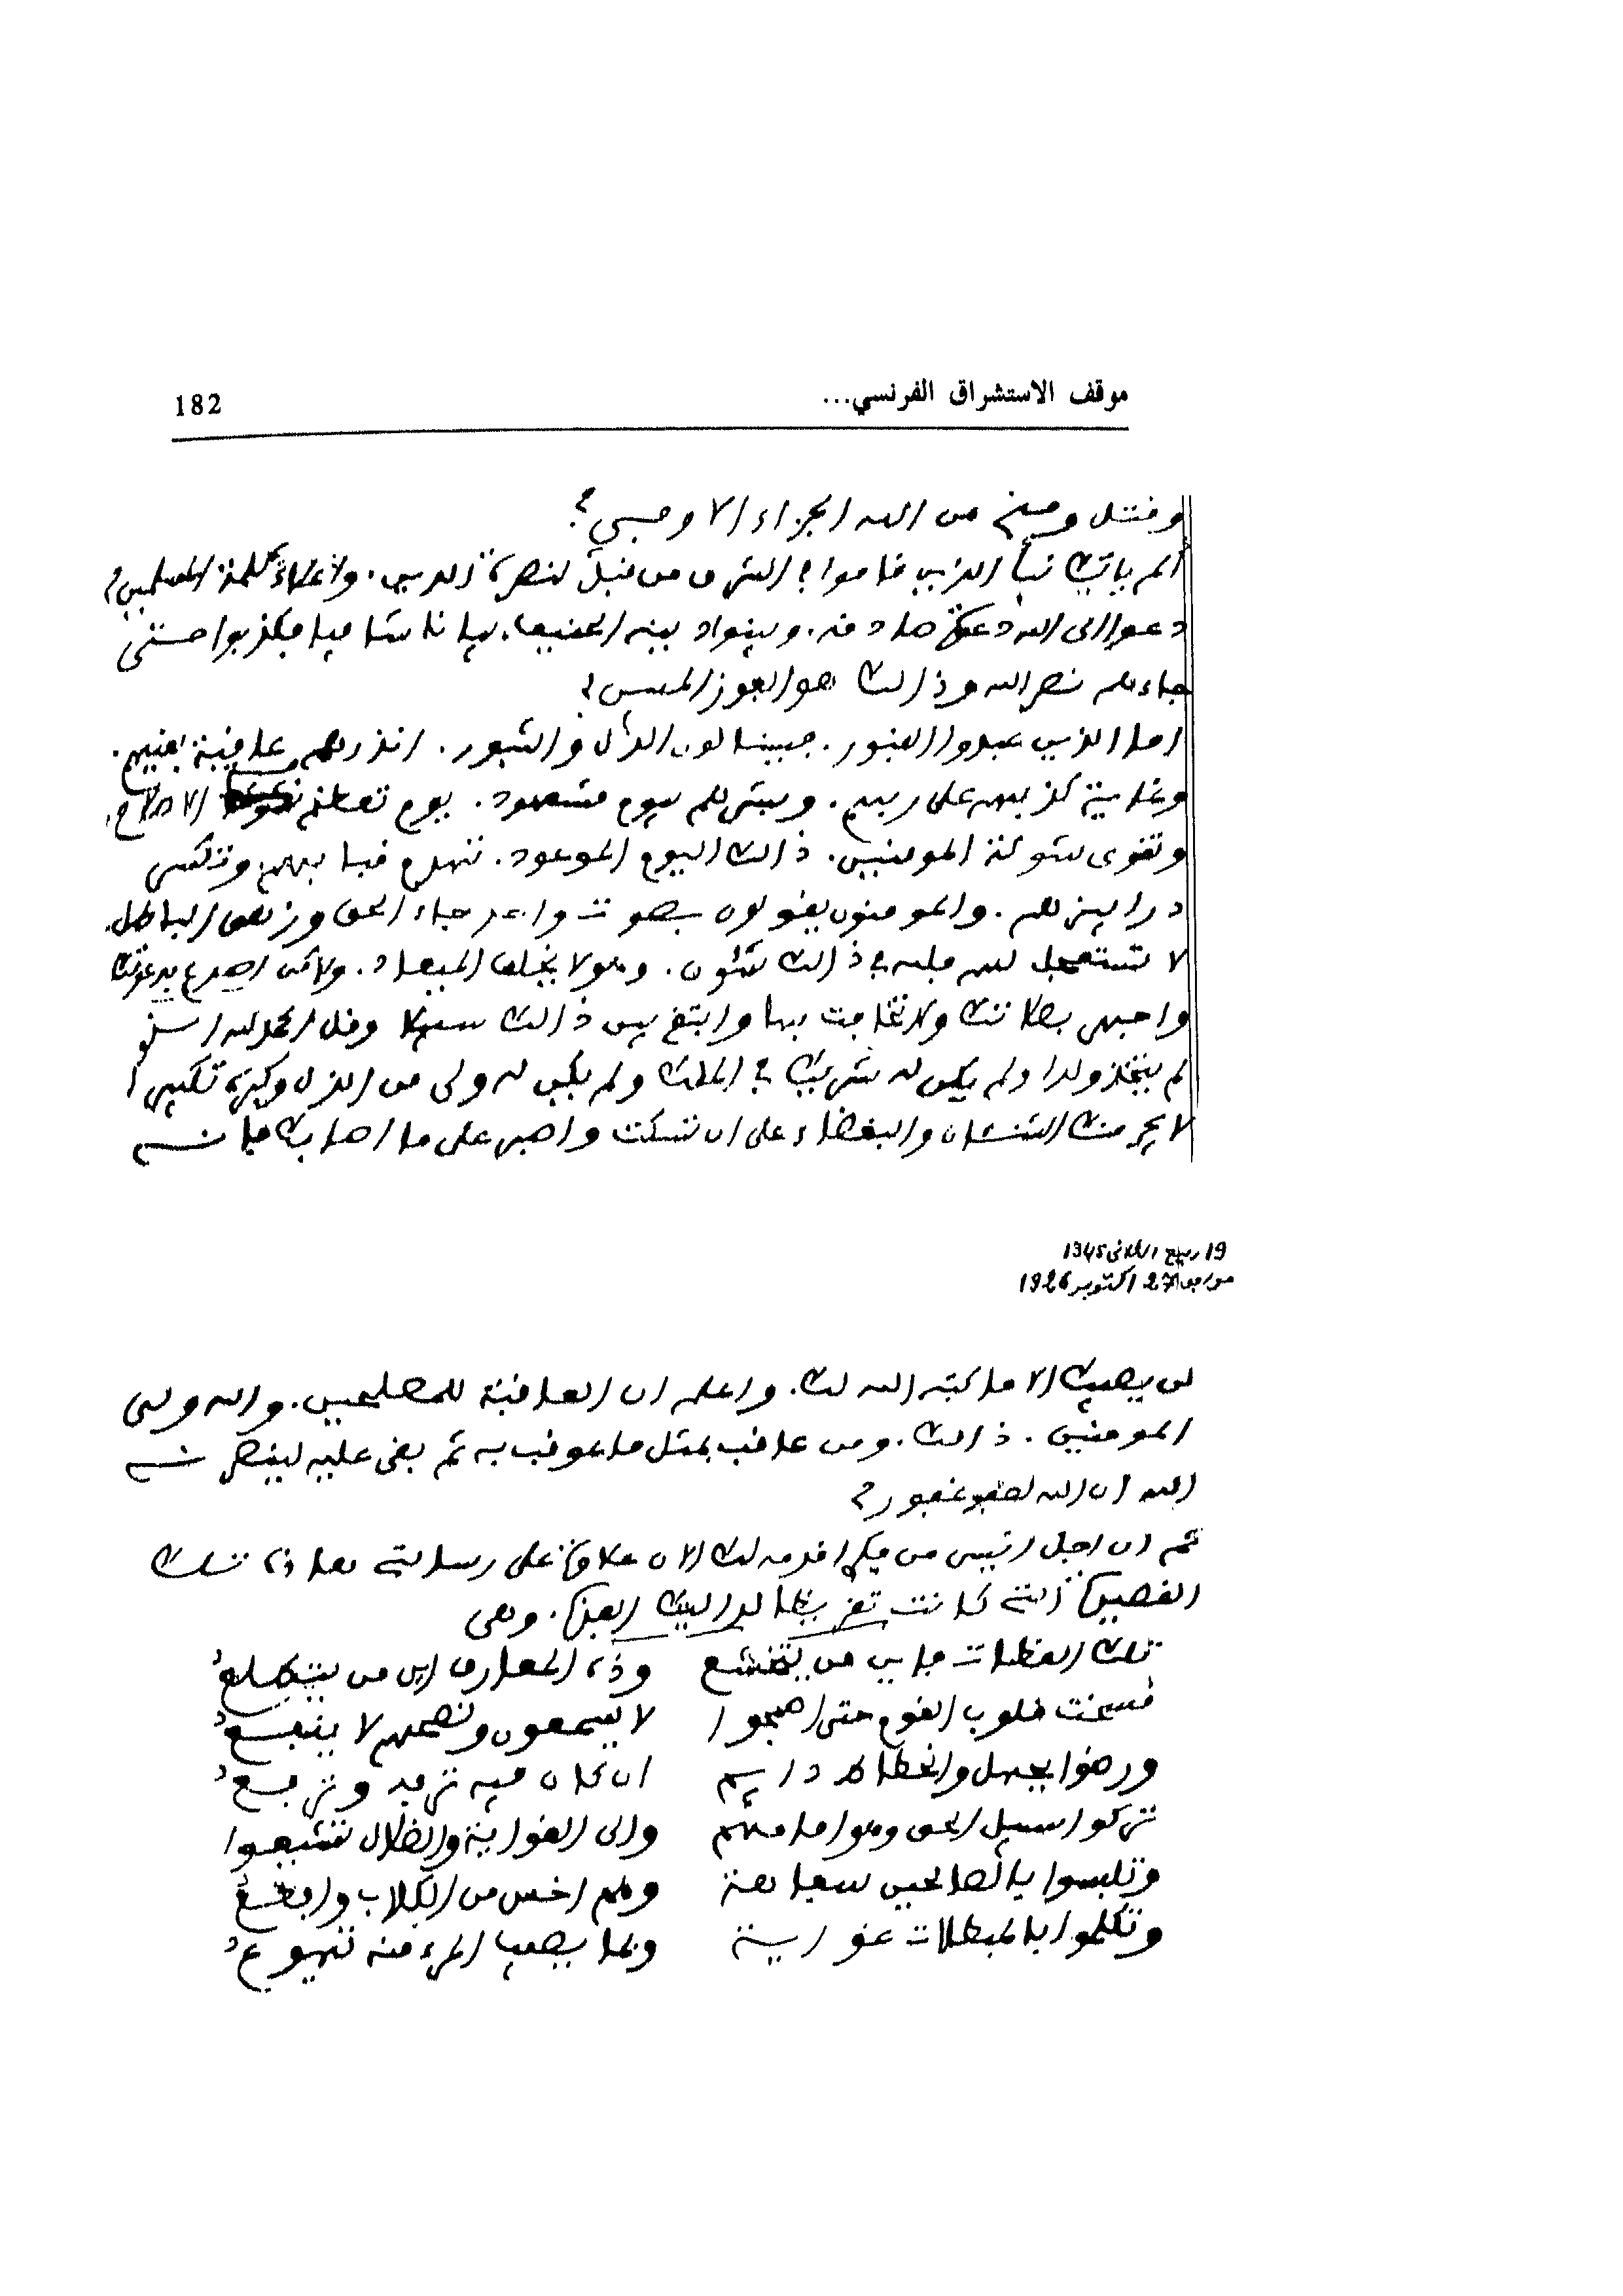 موقف الاستشراق الفرنسي...
182
من الله الجزاء الاوفى؟
ألم ياتك نبأ الذين قاموا في الشرق من قبل لنصرة الدين. ولاعلاء كلمة المصلحين؟
دعوا الى الله دعوة صادقة. وبينوا دينه الحنيف. فكذبوا حتى
جاءهم نصر الله وذالك هو الفوز المبين؟
اما الذين عبدوا القبور. فسينالون الذل والثبور. انذرهم عاقبة بغيهم.
وغاية كذبهم على ربهم. وبشرهم بيوم مشهود. يوم الاصلاح.
وتقوى شوكة المومنين. ذالك اليوم الموعود. تنهدم قبابهم وتنكس
درابيزهم. والمومنون يقولون بصوت واحد جاء الحق وزهق الباطل.
لا تستعجل لله في ذالك شئون. وهو لا يخلف الميعاد. ولاكن اصدع بدعوتك
واجهر بصلاتك ولا تخافت بها وابتغ بين ذالك سبيلا وقل الحمد لله الذي
لم يتخذ ولدا ولم يكن له شريك في الملك ولم يكن له ولى من الذل وكبره تكبيرا
لا يجرمنك الشنئان والبغضاء على ان تسكت واصبر على ما اصابك فانه
19 ربيع الثاني 1345
موافق 27 اكتوبر 1926
لن يصيبك الا ما كتبه الله لك. واعلم ان العاقبة للمصلحين. والله ولى
المومنين. ذالك. ومن عاقب بمثل ما عوقب به ثم بغى عليه لينصرنه
الله ان الله لعفو غفور؟
ثم ان اجل انيس من فكرى اقدمه لك الان علاوة على رسالتي هاذه تلك
القصيدة التي كانت تقريظا لداليك الفذ. وهى
تلك العظات فاين من يتخشع وذى المعارف اين من يتضلع
قست قلوب القوم حتى اصبحوا لا يسمعون ونصحهم لا ينفع
ورضوا بجهل وانحطاط دايم ان كان فيه ثريد وثرفع
تركوا سبيل الحق وهو امامهم والى الغواية والضلال تشيعوا
وتلبسوا بالصالحين سفاهة وهم اخس من الكلاب وافظع
وتكلموا بالمبطلات غواية وبما يصيب المرء منه تهوع